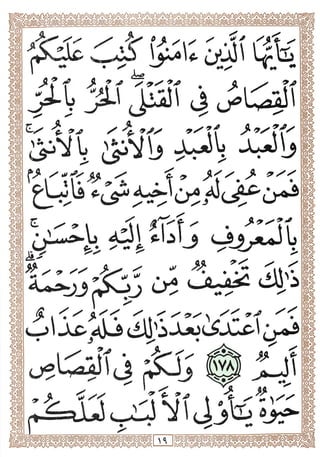 يَـٰٓأَيُّهَا ٱلَّذِينَ ءَامَنُوا۟ كُتِبَ عَلَيْكُمُ
ٱلْقِصَاصُ فِى ٱلْقَتْلَى ۖ ٱلْحُرُّ بِٱلْحُرِّ
وَٱلْعَبْدُ بِٱلْعَبْدِ وَٱلْأُنثَىٰ بِٱلْأُنثَىٰ ۚ
فَمَنْ عُفِىَ لَهُۥ مِنْ أَخِيهِ شَىْءٌ فَٱتِّبَاعٌۢ
بِٱلْمَعْرُوفِ وَأَدَآءٌ إِلَيْهِ بِإِحْسَـٰنٍ ۗ
ذَٰلِكَ تَخْفِيفٌ مِّن رَّبِّكُمْ وَرَحْمَةٌ ۗ
فَمَنِ ٱعْتَدَىٰ بَعْدَ ذَٰلِكَ فَلَهُۥ عَذَابٌ
أَلِيمٌ ١٧٨ وَلَكُمْ فِى ٱلْقِصَاصِ
حَيَوٰةٌ يَـٰٓأُو۟لِى ٱلْأَلْبَـٰبِ لَعَلَّكُمْ
١٩